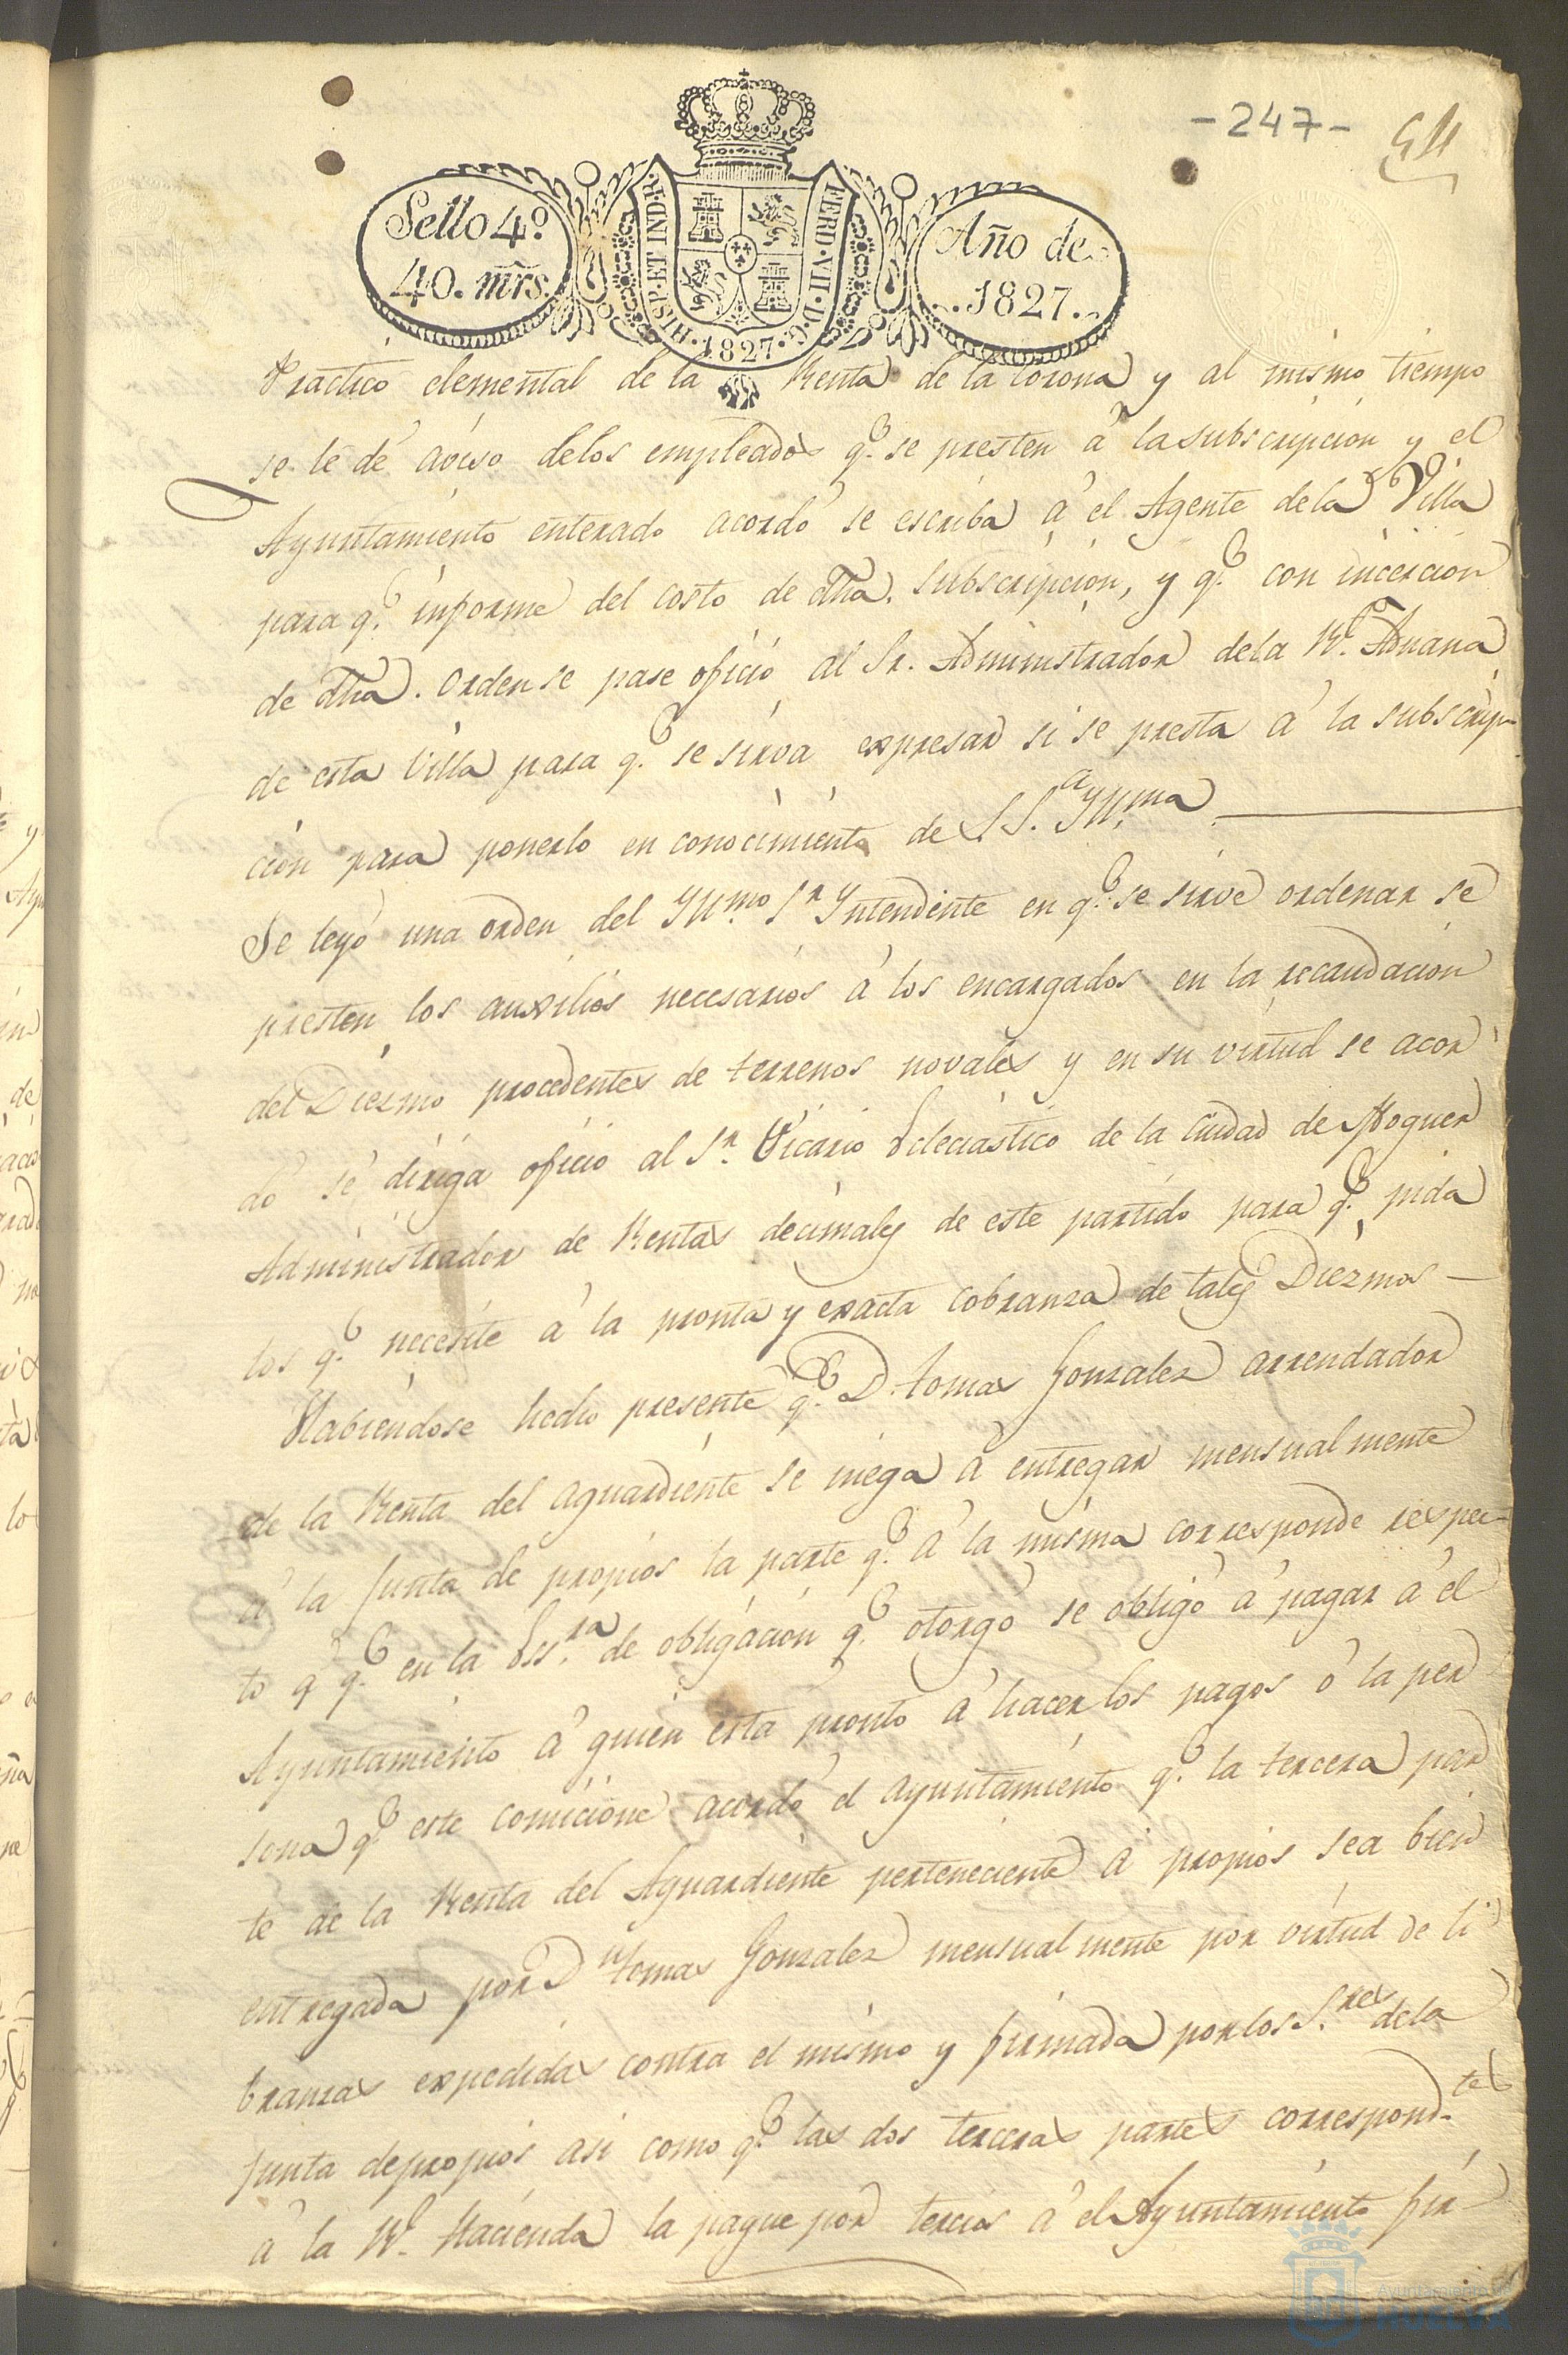 -247- 54
Sello 4.º
40. mrs.
HISP·ET IND·R· 1827· FERD·VII·D·G·
Año de
1827.
Practico elemental de la Renta de la Corona y al mismo tiempo
se le dé aviso delos empleados q.e se presten á la subscripcion y el
Ayuntamiento enterado acordó se escriba á el Agente dela Villa
para q.e informe del costo de dha. subscripcion, y q.e con incercion
de dha. orden se pase oficio al Sr. Administrador dela Rl. Aduana
de esta Villa para q.e se sirva expresar si se presta á la subscrip-
cion para ponerlo en conocimiento de S S.a Yll.ma
Se leyó una orden del Yll.mo Sr Yntendente en q.e se sirve ordenar se
presten los auxilios necesarios á los encargados en la recaudacion
del Diezmo procedentes de terrenos novales y en su virtud se acor
dó se dirija oficio al Sr. Vicario Ecleciastico de la Ciudad de Moguer
Administrador de Rentas decimales de este partido para q.e pida
los q.e necesite á la pronta y exacta cobranza de tales Diezmos —
Habiendose hecho presente q.e D. Tomas Gonzalez arrendador
de la Renta del aguardiente se niega á entregar mensualmente
á la Junta de propios la parte q.e á la misma corresponde respec-
to á q.e en la Ess.ra de obligacion q.e otorgó se obligó á pagar á el
Ayuntamiento á quien esta pronto á hacer los pagos ó la per
sona q.e este comicione acordó el ayuntamiento q.e la tercera par
te de la Renta del Aguardiente perteneciente á propios sea bien
entregada por Dn Tomas Gonzalez mensualmente por virtud de li
branzas expedidas contra el mismo y firmada por los S.res dela
Junta de propios asi como q.e las dos terceras partes correspond.tes
á la Rl. Hacienda la pague por tercios á el Ayuntamiento fir
Ayuntamiento de
HUELVA